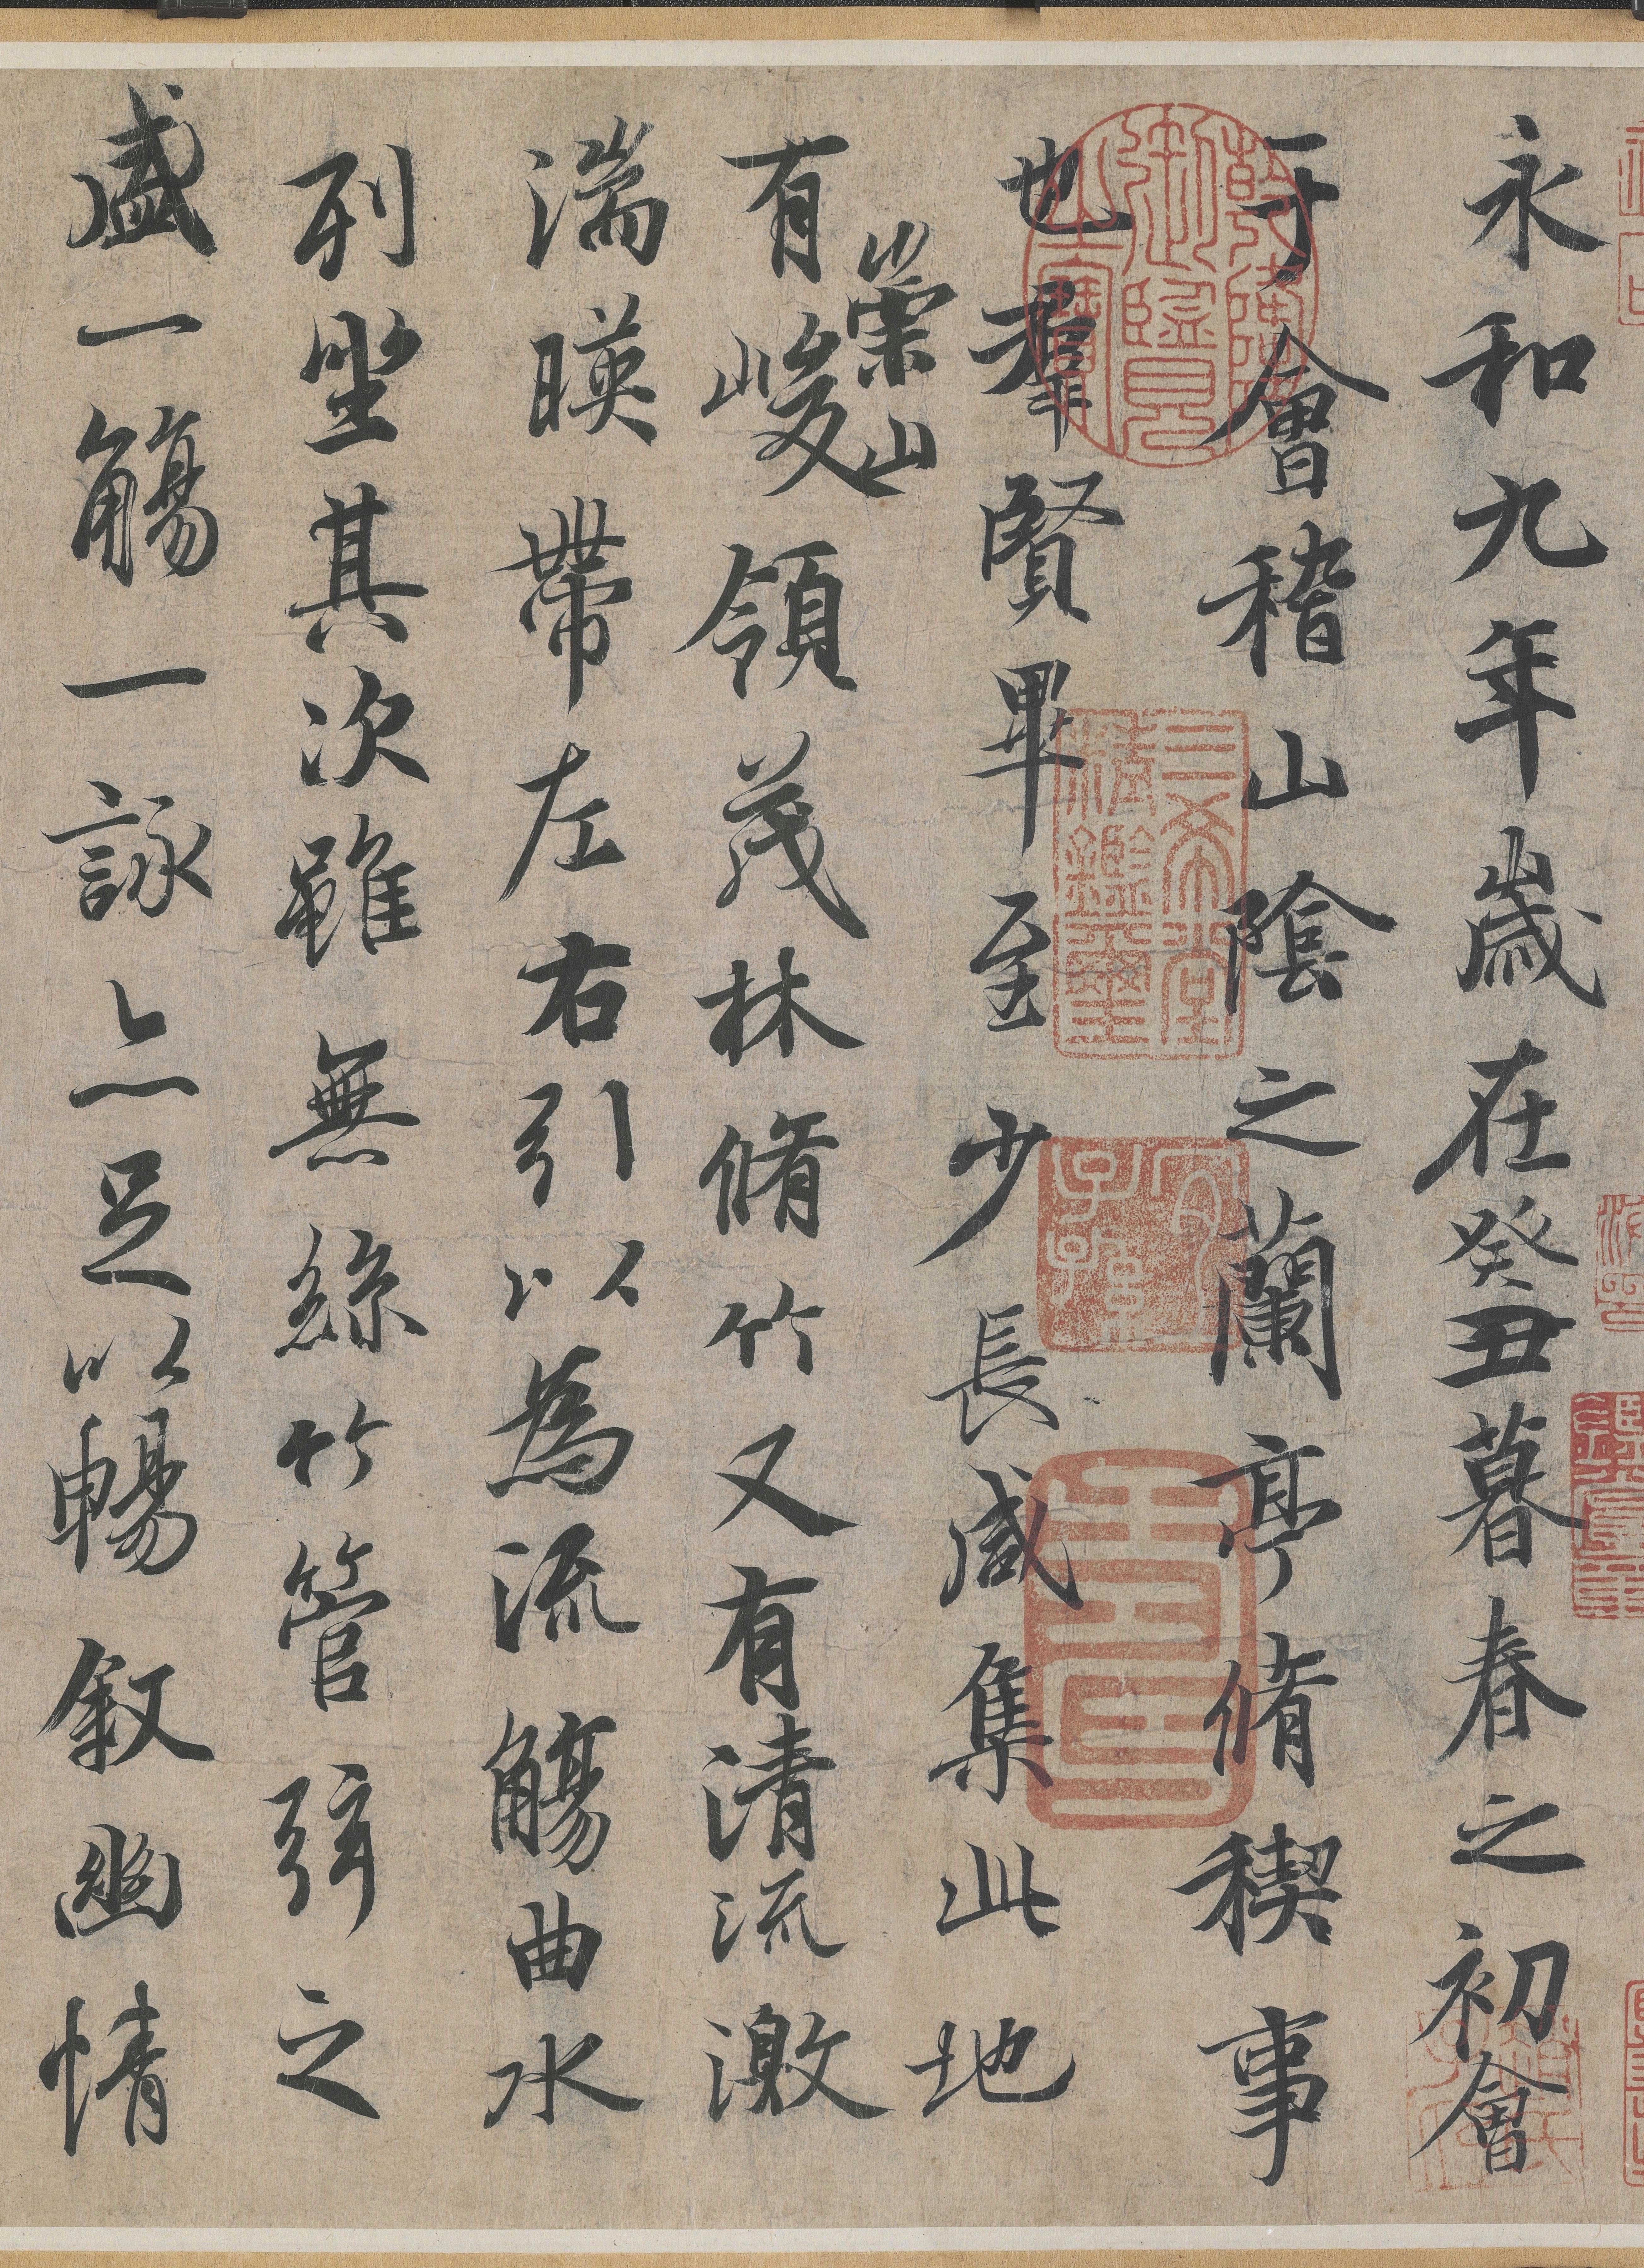 永和九年歲在癸丑暮春之初會
于會稽山陰之蘭亭脩稧事
也羣賢畢至少長咸集此地
崇山
有峻領茂林脩竹又有清流激
湍暎帶左右引以為流觴曲水
列坐其次雖無絲竹管弦之
盛一觴一詠亦足以暢敘幽情
三希堂精鑑璽
宜子孫